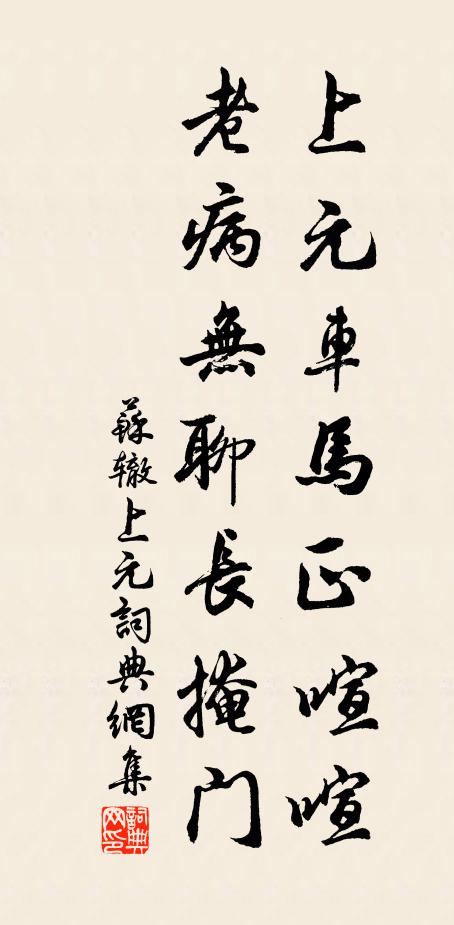 上元車馬正喧喧
老病無聊長掩門
蘇轍上元詞典網集
詞典
网印